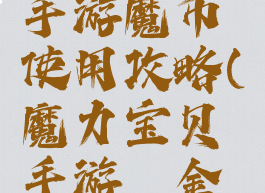 手游魔币
使用攻略(
魔力宝贝
手游 金